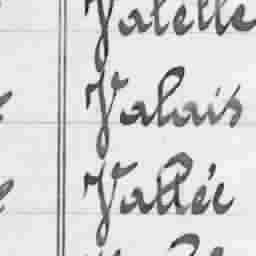 Valette
Valais
Vallée